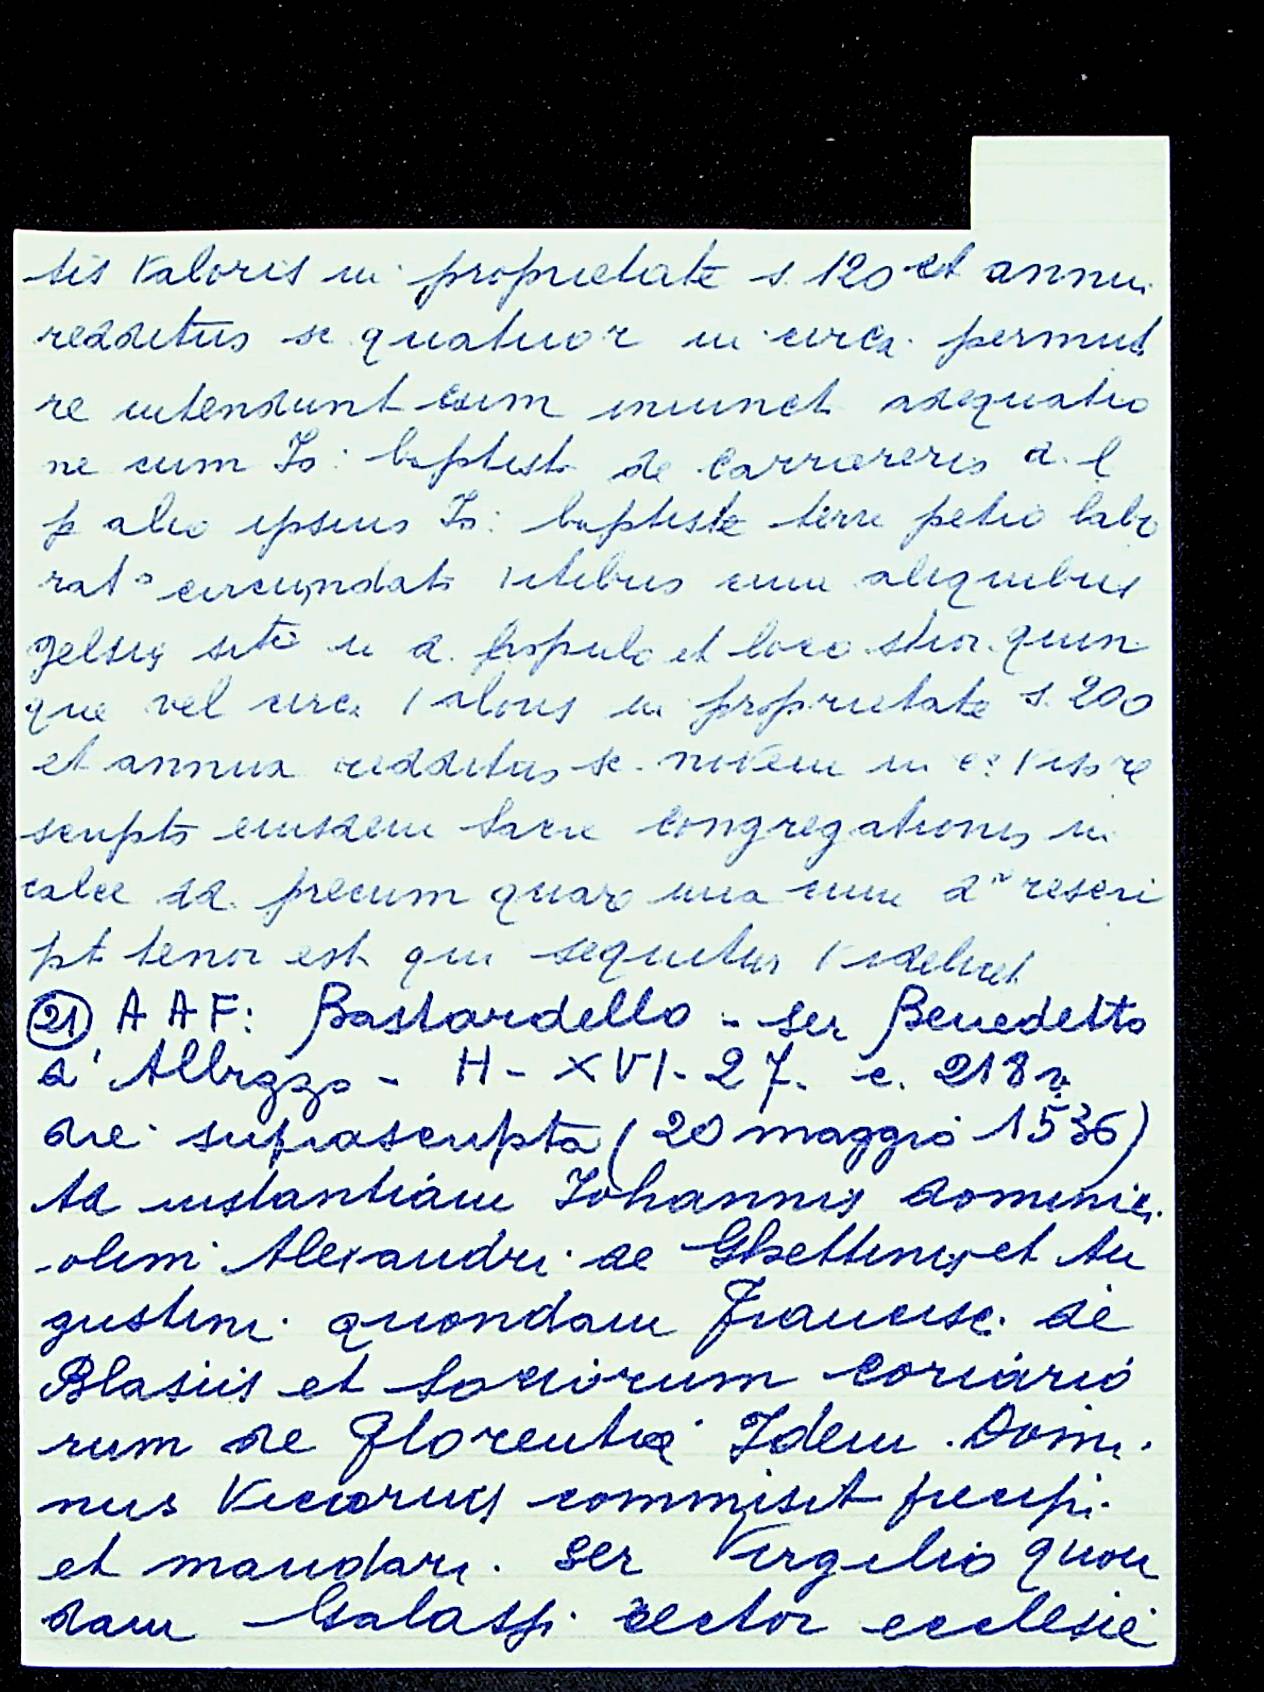 tis valoris in proprietate s. 120 et annui
redditus sc quatuor in circa permut
re intendunt cum iniunct adequatio
ne cum Io: baptist de Carrereris d. l
p alio ipsius Io: baptiste terre petio labo
rato circumdato vitibus cum aliquibus
gelsis sito in d. populo et loco stior. quin
que vel circa valoris in proprietate s. 200
et annui redditus sc. novem in c. viso re
scripto eiusdem Sacre congregationis in
calce dd. precum quare una cum do rescri
pt tenor est qui sequitur videlicet
(21) A A F: Bastardello - ser Benedetto
d'Albizzo - H - XVI - 27. c. 218 r.
die suprascripta (20 maggio 1536)
Ad instantiam Iohannis dominici
olim Alexandri de Ghettinis et Au
gustini quondam Francisci de
Blasiis et Sociorum coriario
rum de Florentia Idem Domi
nus Vicarius commisit precipi
et mandari ser Virgilio quon
dam Galassi rector ecclesie